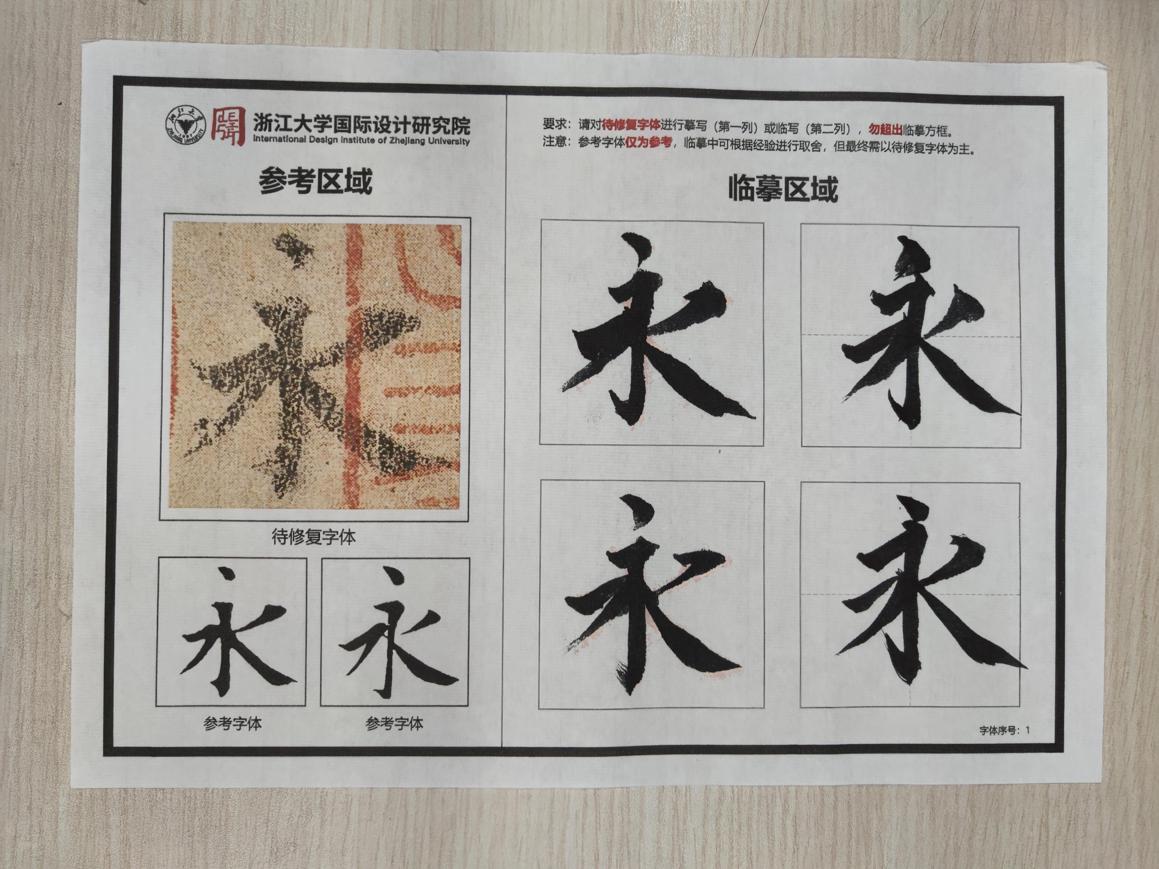 浙江大学国际设计研究院
International Design Institute of Zhejiang University
参考区域
永
待修复字体
永 永
参考字体 参考字体
要求：请对待修复字体进行摹写（第一列）或临写（第二列），勿超出临摹方框。
注意：参考字体仅为参考，临摹中可根据经验进行取舍，但最终需以待修复字体为主。
临摹区域
永 永
永 永
字体序号：1